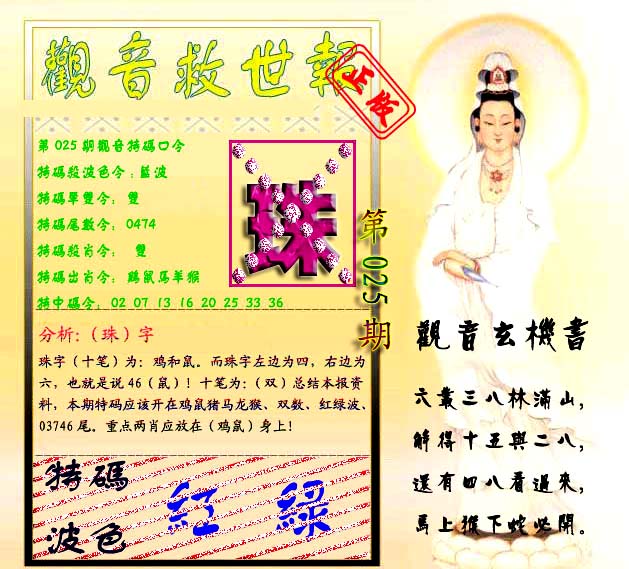 觀音救世報
正版
第025期觀音特碼口令
特碼殺波色令：藍波
特碼單雙令： 雙
特碼尾數令： 0474
特碼殺肖令： 雙
特碼出肖令： 鷄鼠馬羊猴
特中碼令：02 07 13 16 20 25 33 36
珠
第025期
分析:（珠）字
珠字（十笔）为：鸡和鼠。而珠字左边为四，右边为
六，也就是说46（鼠）！十笔为：（双）总结本报资
料，本期特码应该开在鸡鼠猪马龙猴、双数、红绿波、
03746尾。重点两肖应放在（鸡鼠）身上！
特碼
波色
紅 綠
觀音玄機書
六叢三八林滿山，
解得十五與二八，
還有四八看過來，
馬上猴下蛇必開。